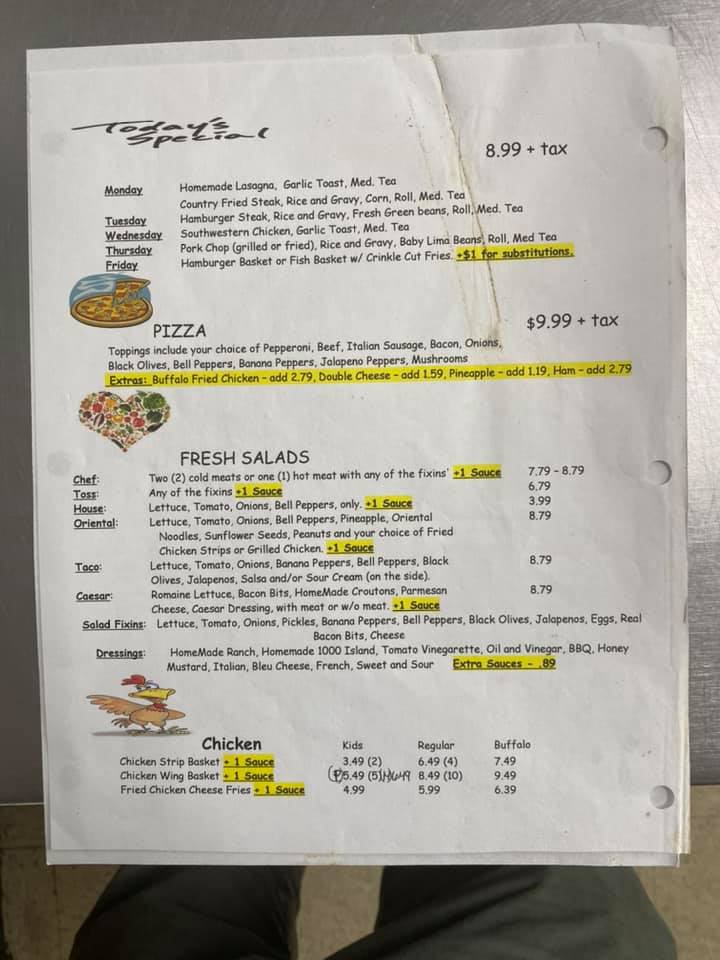 Today's
Special
8.99 + tax
Monday Homemade Lasagna, Garlic Toast, Med. Tea
Country Fried Steak, Rice and Gravy, Corn, Roll, Med. Tea
Tuesday Hamburger Steak, Rice and Gravy, Fresh Green beans, Roll, Med. Tea
Wednesday Southwestern Chicken, Garlic Toast, Med. Tea
Thursday Pork Chop (grilled or fried), Rice and Gravy, Baby Lima Beans, Roll, Med Tea
Friday Hamburger Basket or Fish Basket w/ Crinkle Cut Fries. +$1 for substitutions.
PIZZA $9.99 + tax
Toppings include your choice of Pepperoni, Beef, Italian Sausage, Bacon, Onions,
Black Olives, Bell Peppers, Banana Peppers, Jalapeno Peppers, Mushrooms
Extras: Buffalo Fried Chicken - add 2.79, Double Cheese - add 1.59, Pineapple - add 1.19, Ham - add 2.79
FRESH SALADS
Chef: Two (2) cold meats or one (1) hot meat with any of the fixins' +1 Sauce 7.79 - 8.79
Toss: Any of the fixins +1 Sauce 6.79
House: Lettuce, Tomato, Onions, Bell Peppers, only. +1 Sauce 3.99
Oriental: Lettuce, Tomato, Onions, Bell Peppers, Pineapple, Oriental 8.79
Noodles, Sunflower Seeds, Peanuts and your choice of Fried
Chicken Strips or Grilled Chicken. +1 Sauce
Taco: Lettuce, Tomato, Onions, Banana Peppers, Bell Peppers, Black 8.79
Olives, Jalapenos, Salsa and/or Sour Cream (on the side).
Caesar: Romaine Lettuce, Bacon Bits, HomeMade Croutons, Parmesan 8.79
Cheese, Caesar Dressing, with meat or w/o meat. +1 Sauce
Salad Fixins: Lettuce, Tomato, Onions, Pickles, Banana Peppers, Bell Peppers, Black Olives, Jalapenos, Eggs, Real
Bacon Bits, Cheese
Dressings: HomeMade Ranch, Homemade 1000 Island, Tomato Vinegarette, Oil and Vinegar, BBQ, Honey
Mustard, Italian, Bleu Cheese, French, Sweet and Sour Extra Sauces - .89
Chicken Kids Regular Buffalo
Chicken Strip Basket + 1 Sauce 3.49 (2) 6.49 (4) 7.49
Chicken Wing Basket + 1 Sauce 5.49 (5) 8.49 (10) 9.49
Fried Chicken Cheese Fries + 1 Sauce 4.99 5.99 6.39